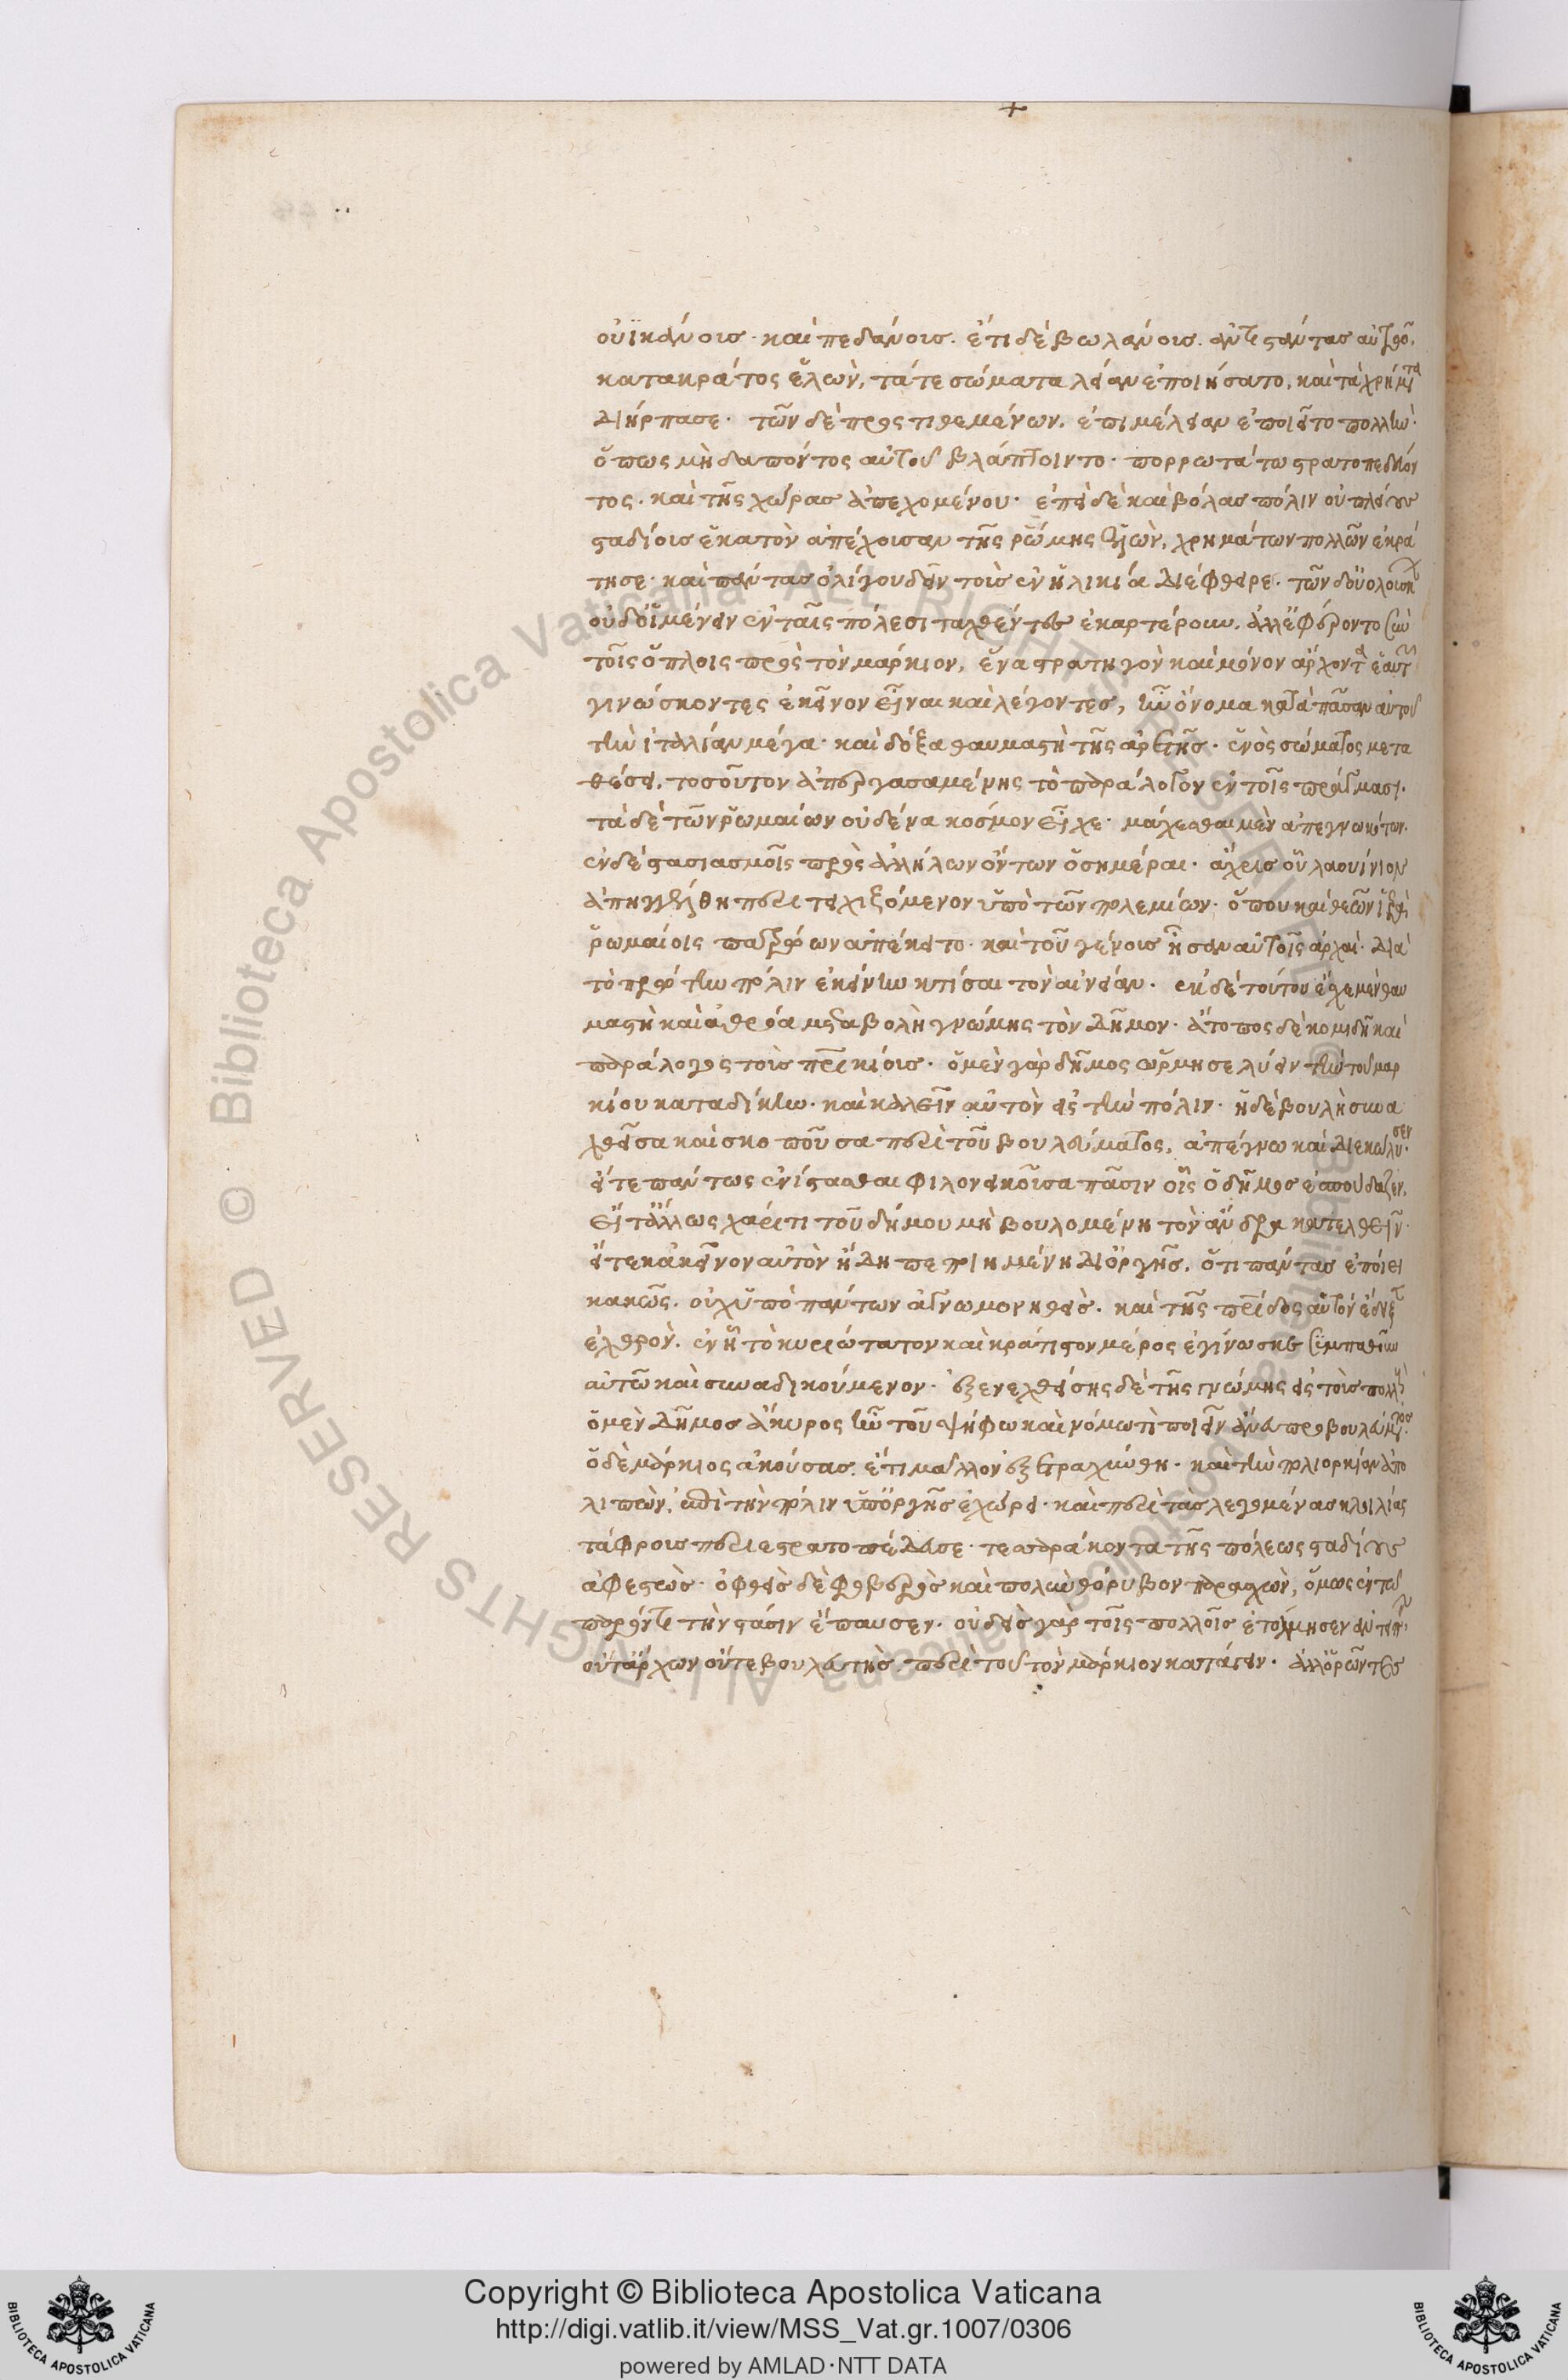 οὐϊκάνους· καὶ πεδάνους. ἔτι δὲ βωλάνους. ἀντιστάντας αὐτῶ
κατακράτος ἑλών, τά τε σώματα λείαν ἐποιήσατο, καὶ τὰ χρήματα
διήρπασε· τῶν δὲ προς τιθεμένων. ἐπιμέλειαν ἐποιεῖτο πολλήν·
ὅπως μὴδαπόντος αὐτοῦ βλάπτοιντο· πορρωτάτω στρατοπεδεύον
τος. καὶ τῆς χώρας ἀπεχομένου· ἐπεὶ δὲ καὶ βόλας πόλιν οὐ πλείους
σταδίους ἑκατὸν ἀπέχουσαν τῆς ῥώμης ἑλών, χρημάτων πολλῶν ἐκρά
τησε· καὶ πάντας ὀλίγου δεῖν τοὺς ἐν ἡλικία διέφθειρε. τῶν δ' οὐόλούσκων
οὐδ' οἱ μένειν ἐν ταῖς πόλεσι ταχθέντες ἐκαρτέρουν. ἀλλ' ἐφέροντο σὺν
τοῖς ὅπλοις πρὸς τὸν μάρκιον, ἕνα στρατηγὸν καὶ μόνον ἄρχοντα ἑαυτῶν
γινώσκοντες ἐκεῖνον εἶναι καὶ λέγοντες, ἦν ὄνομα κατὰ πᾶσαν αὐτοῦ
τὴν ἰταλίαν μέγα· καὶ δόξα θαυμαστὴ τῆς ἀρετῆς. ἑνὸς σώματος μετα
θέσει. τοσοῦτον ἀπεργασαμένης τὸ παράλογον ἐν τοῖς πράγμασι.
τὰ δὲ τῶν ῥωμαίων οὐδένα κόσμον εἶχε· μάχεσθαι μὲν ἀπεγνωκότων.
ἐν δὲ στασιασμοῖς πρὸς ἀλλήλων ὄντων ὁσημέραι· ἄχρις οὗ λαουίνιον
ἀπηγγέλθη περιτειχιζόμενον ὑπὸ τῶν πολεμίων· ὅπου καὶ θεῶν ἱερὰ
ῥωμαίοις πατρώων ἀπέκειτο· καὶ τοῦ γένους ἦσαν αὐτοῖς ἀρχαί· διὰ
τὸ πρώτην πόλιν ἐκείνην κτίσαι τὸν αἰνείαν. ἐκ δὲ τούτου ἔσχε μὲν θαυ
μαστὴ καὶ ἀθρόα μεταβολὴ γνώμης τὸν δῆμον· ἄτοπος δὲ κομιδῆ καὶ
παράλογος τοὺς πατρικίους. ὁ μὲν γὰρ δῆμος ὥρμησε λύειν τὴν τοῦ μαρ
κίου καταδίκην. καὶ καλεῖν αὐτὸν εἰς τὴν πόλιν· ἡ δὲ βουλὴ συνα
χθεῖσα καὶ σκοποῦσα περὶ τοῦ βουλεύματος, ἀπέγνω καὶ διεκώλυσεν.
εἴτε πάντως ἐνίστασθαι φιλονεικοῦσα πᾶσιν οἷς ὁ δῆμος ἐσπούδαζεν.
εἴτ' ἄλλως χάριτι τοῦ δήμου μὴ βουλομένη τὸν ἄνδρα κατελθεῖν·
εἴτε κἀκεῖνον αὐτὸν ἤδη πεποιημένη δι' ὀργῆς. ὅτι πάντας ἐποίει
κακῶς. οὐχ ὑπὸ πάντων ἀγνωμονηθείς. καὶ τῆς πατρίδος αὑτὸν ἔδειξεν
ἐχθρόν. ἐν ἧ τὸ κυριώτατον καὶ κράτιστον μέρος ἐγίνωσκε συμπαθοῦν
αὐτῶ καὶ συναδικούμενον· ἐξενεχθείσης δὲ τῆς γνώμης εἰς τοὺς πολλούς,
ὁ μὲν δῆμος ἄκυρος ἦν τοῦ ψήφω καὶ νόμω τὶ ποιεῖν ἄνευ προβουλεύματος.
ὁ δὲ μάρκιος ἀκούσας. ἔτι μᾶλλον ἐξετραχύνθη· καὶ τὴν πολιορκίαν ἀπο
λιπών, ἐπὶ τὴν πόλιν ὑπ' ὀργῆς ἐχώρει· καὶ περὶ τὰς λεγομένας κλοιλίας
τάφρους περιεστρατοπέδευσε· τεσσαράκοντα τῆς πόλεως σταδίους
ἀφεστώς· ὀφθεὶς δὲ φοβερὸς καὶ πολὺν θόρυβον παρασχών, ὅμως ἐν τῶ
παρόντι τὴν στάσιν ἔπαυσεν. οὐδεὶς γὰρ τοῖς πολλοῖς ἐτόλμησεν ἀντειπεῖν.
οὔτ' ἄρχων οὔτε βουλευτής. περὶ τοῦ τὸν μάρκιον κατάγειν. ἀλλ' ὁρῶντες
Copyright © Biblioteca Apostolica Vaticana
http://digi.vatlib.it/view/MSS_Vat.gr.1007/0306
powered by AMLAD·NTT DATA
BIBLIOTECA APOSTOLICA VATICANA
BIBLIOTECA APOSTOLICA VATICANA
© Biblioteca Apostolica Vaticana ALL RIGHTS RESERVED